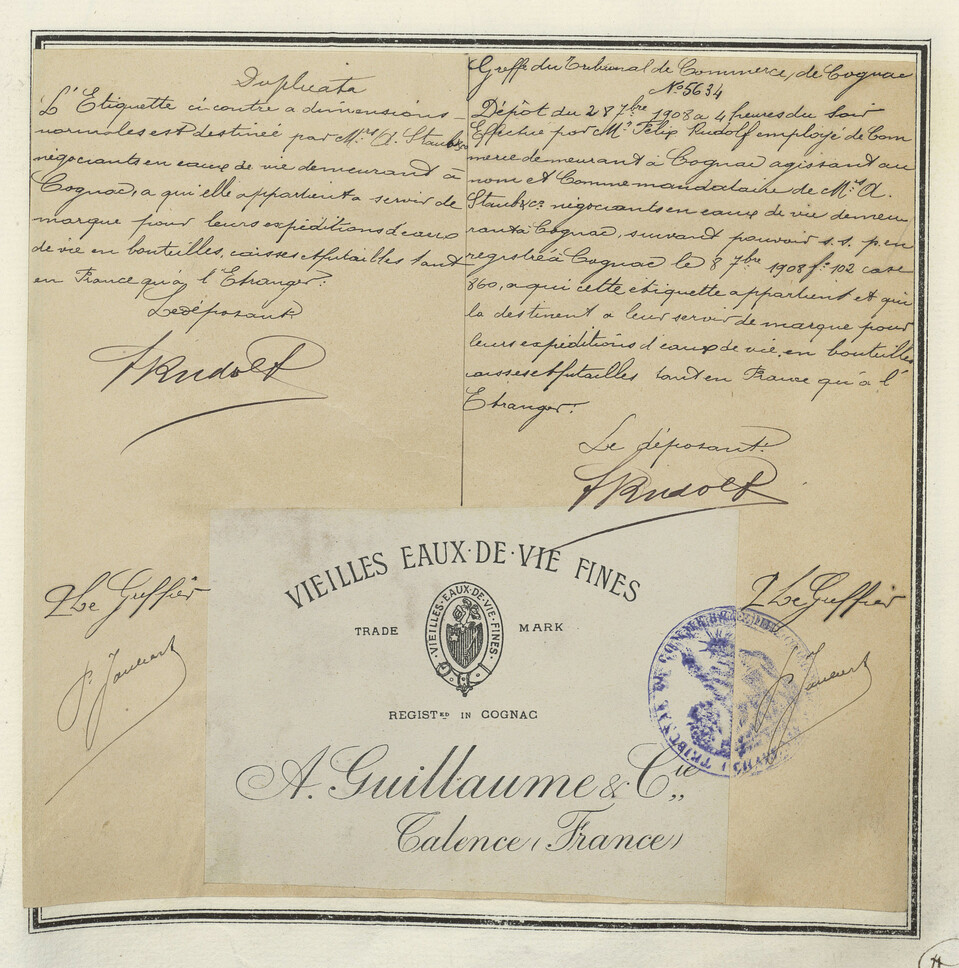 Duplicata
L'Etiquette ci contre a dimensions
normales est destinée par Mrs A. Staub & Co
négociants en eaux de vie demeurant à
Cognac, a qui elle appartient a servir de
marque pour leurs expéditions d'eaux
de vie en bouteilles, caisses et futailles tant
en France qu'à l'Etranger.
Le déposant
F Rudolf
Greffe du Tribunal de Commerce, de Cognac
No 5634
Dépôt du 28 7bre 1908 a 4 heures du soir
Effectué par Mr Félix Rudolf employé de Com
merce demeurant à Cognac agissant au
nom et Comme mandataire de Mrs A.
Staub & Co négociants en eaux de vie demeu
rant à Cognac, suivant pouvoir s.s. p. en
registré à Cognac le 8 7bre 1908 fo 102 case
860, a qui cette étiquette appartient et qui
la destinent a leur servir de marque pour
leurs expéditions d'eaux de vie, en bouteilles
caisses et futailles tant en France qu'à l'
Etranger.
Le déposant
F Rudolf
Le Greffier
Le Greffier
VIEILLES EAUX·DE·VIE FINES
·VIEILLES·EAUX·DE·VIE·FINES·
TRADE MARK
REGISTED IN COGNAC
A. Guillaume & Cie,,
Talence (France)
TRIBUNAL DE COMMERCE